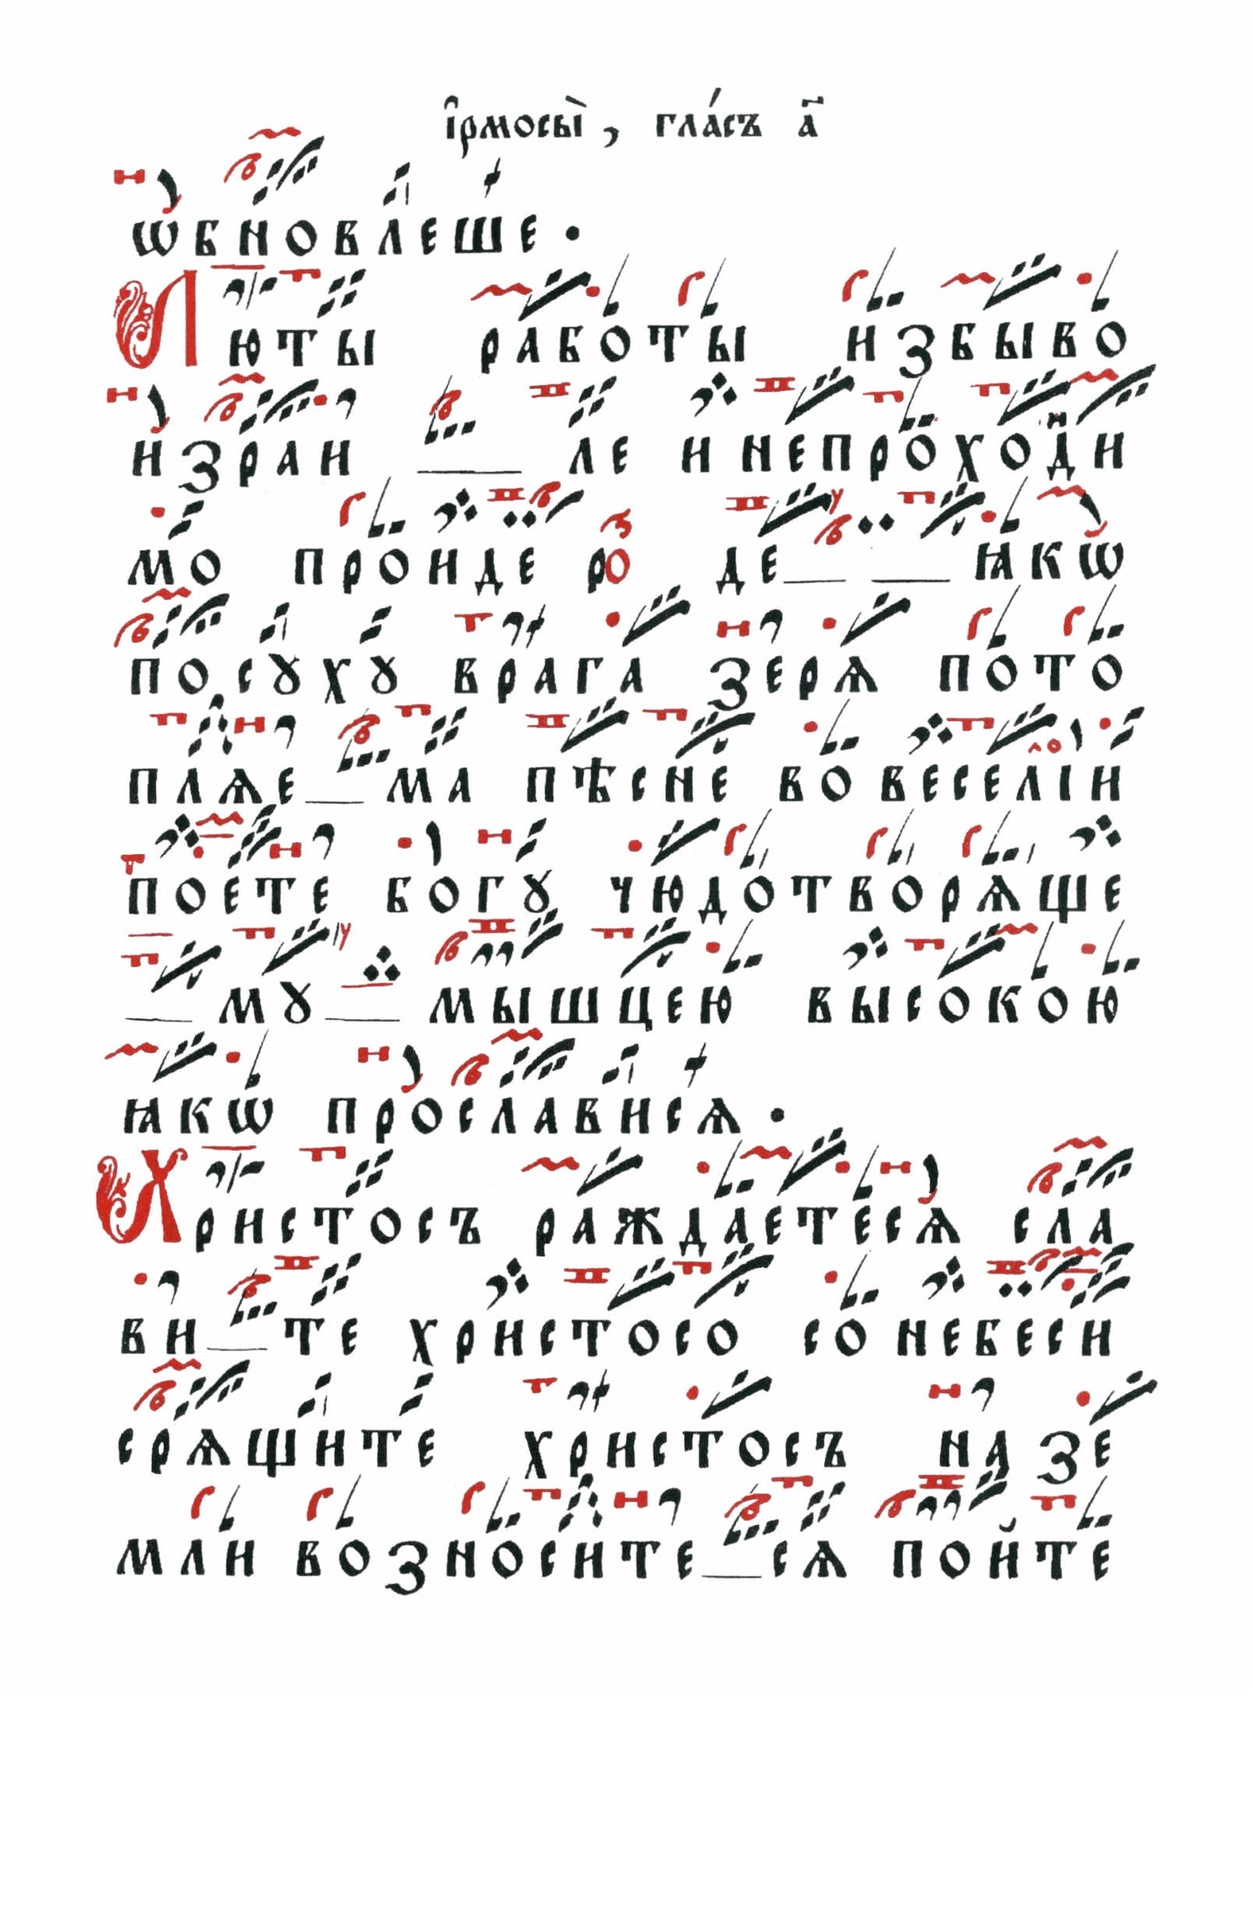 і҆рмосы̀, гла́съ а҃
ѡбновлеше.
Люты работы избыво
изран ле и непроходи
мо проиде ро де ꙗкѡ
посꙋхꙋ врага зеря пото
пляе ма пѣсне во веселіи
поете богꙋ чюдотворяще
мꙋ мышцею высокою
ꙗкѡ прославися.
Христосъ раждаетеся сла
ви те христосо со небеси
срящите христосъ на зе
мли возносите ся пойте